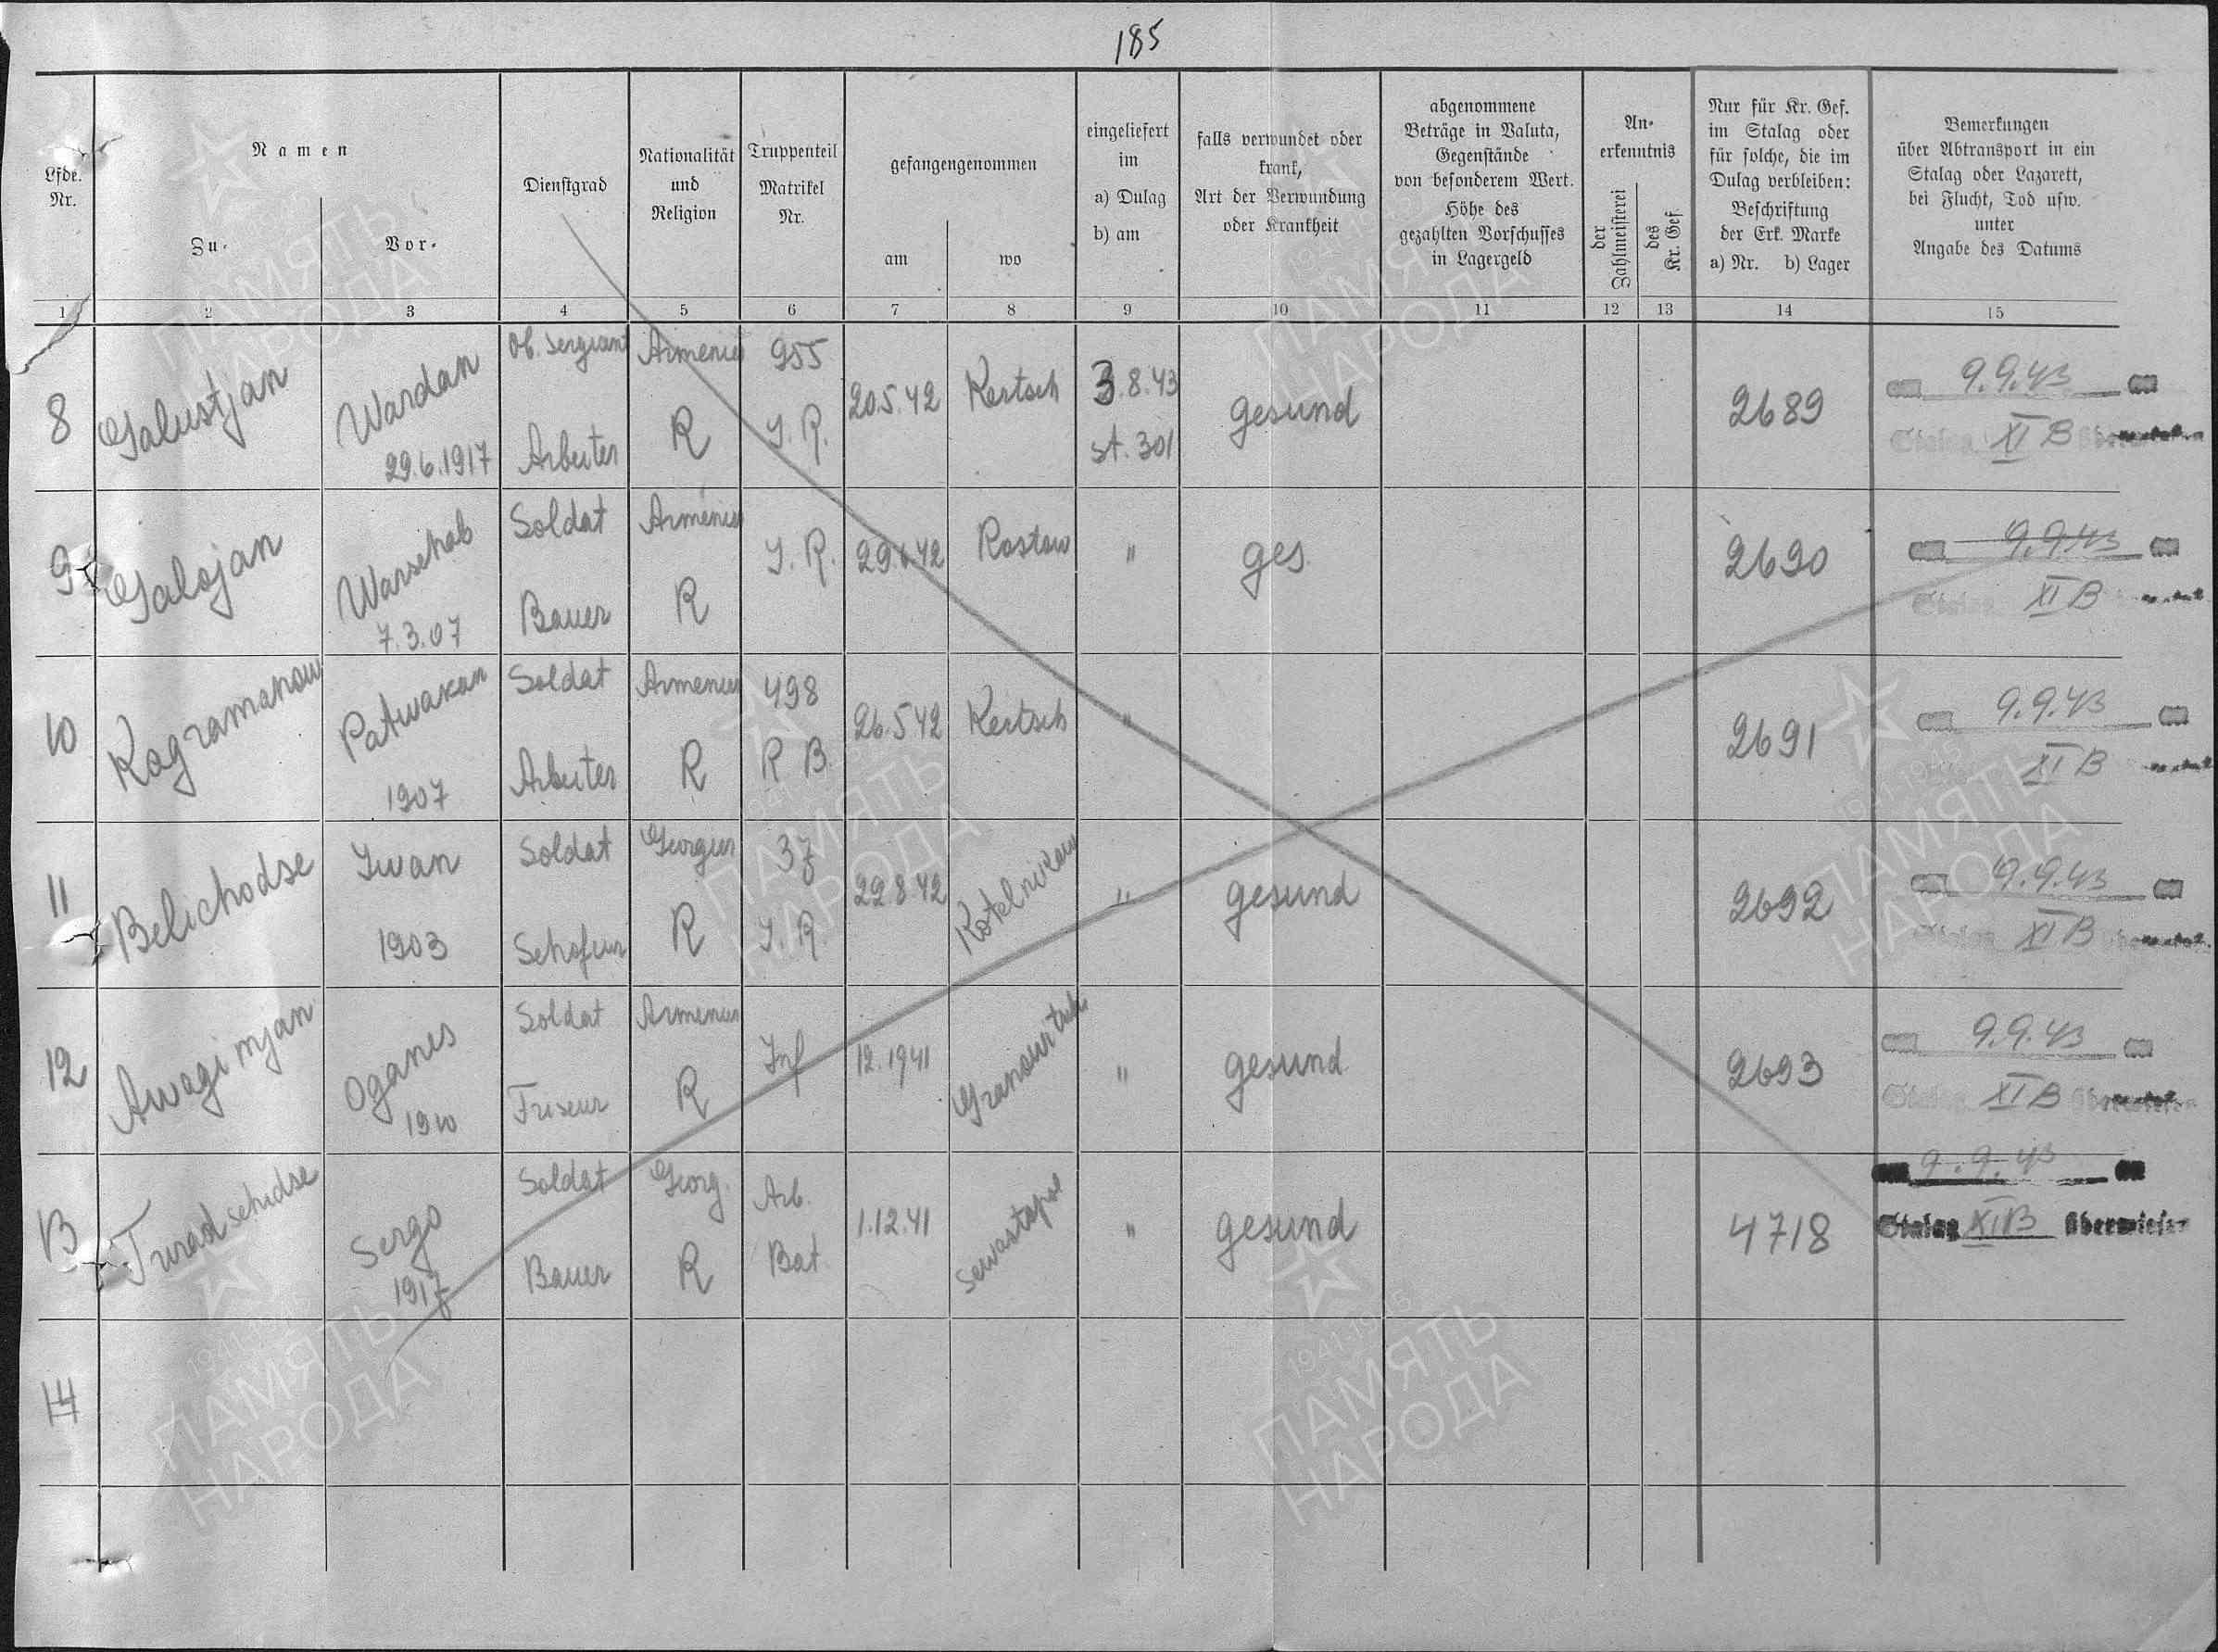 185
Lfde. Nr.
Namen
Zu-
Vor-
Dienstgrad
Nationalität und Religion
Truppenteil Matrikel Nr.
gefangengenommen
am
wo
eingeliefert im a) Dulag b) am
falls verwundet oder krank, Art der Verwundung oder Krankheit
abgenommene Beträge in Valuta, Gegenstände von besonderem Wert. Höhe des gezahlten Vorschusses in Lagergeld
An-erkenntnis
der Zahlmeisterei
des Kr. Gef.
Nur für Kr. Gef. im Stalag oder für solche, die im Dulag verbleiben: Beschriftung der Erk. Marke a) Nr. b) Lager
Bemerkungen über Abtransport in ein Stalag oder Lazarett, bei Flucht, Tod usw. unter Angabe des Datums
1 2 3 4 5 6 7 8 9 10 11 12 13 14 15
8 Galustjan Wardan Ob. Sergiant Armenier 955 20.5.42 Kertsch 3.8.43 gesund 2689 9.9.43
29.6.1917 Arbeiter R J. R. st. 301 Stalag XI B
9 Galojan Warschab Soldat Armenier J. R. Rostow " ges. 2690 9.9.43
7.3.07 Bauer R Stalag XI B
10 Kagramanow Patwakan Soldat Armenier 498 26.5.42 Kertsch " 2691 9.9.43
1907 Arbeiter R R B XI B
11 Belichodse Iwan Soldat Georgier 37 22.8.42 Kotelnikow " gesund 2692 9.9.43
1903 Schofeur R J. R. Stalag XI B
12 Awagimjan Oganes Soldat Armenier Inf 12.1941 " gesund 2693 9.9.43
1910 Friseur R Stalag XI B überwiesen
13 Sergo Soldat Georg. Arb. 1.12.41 Sewastopol " gesund 4718 9.9.43
1917 Bauer R Bat Stalag XI B überwiesen
14
1941-1945
ПАМЯТЬ
НАРОДА